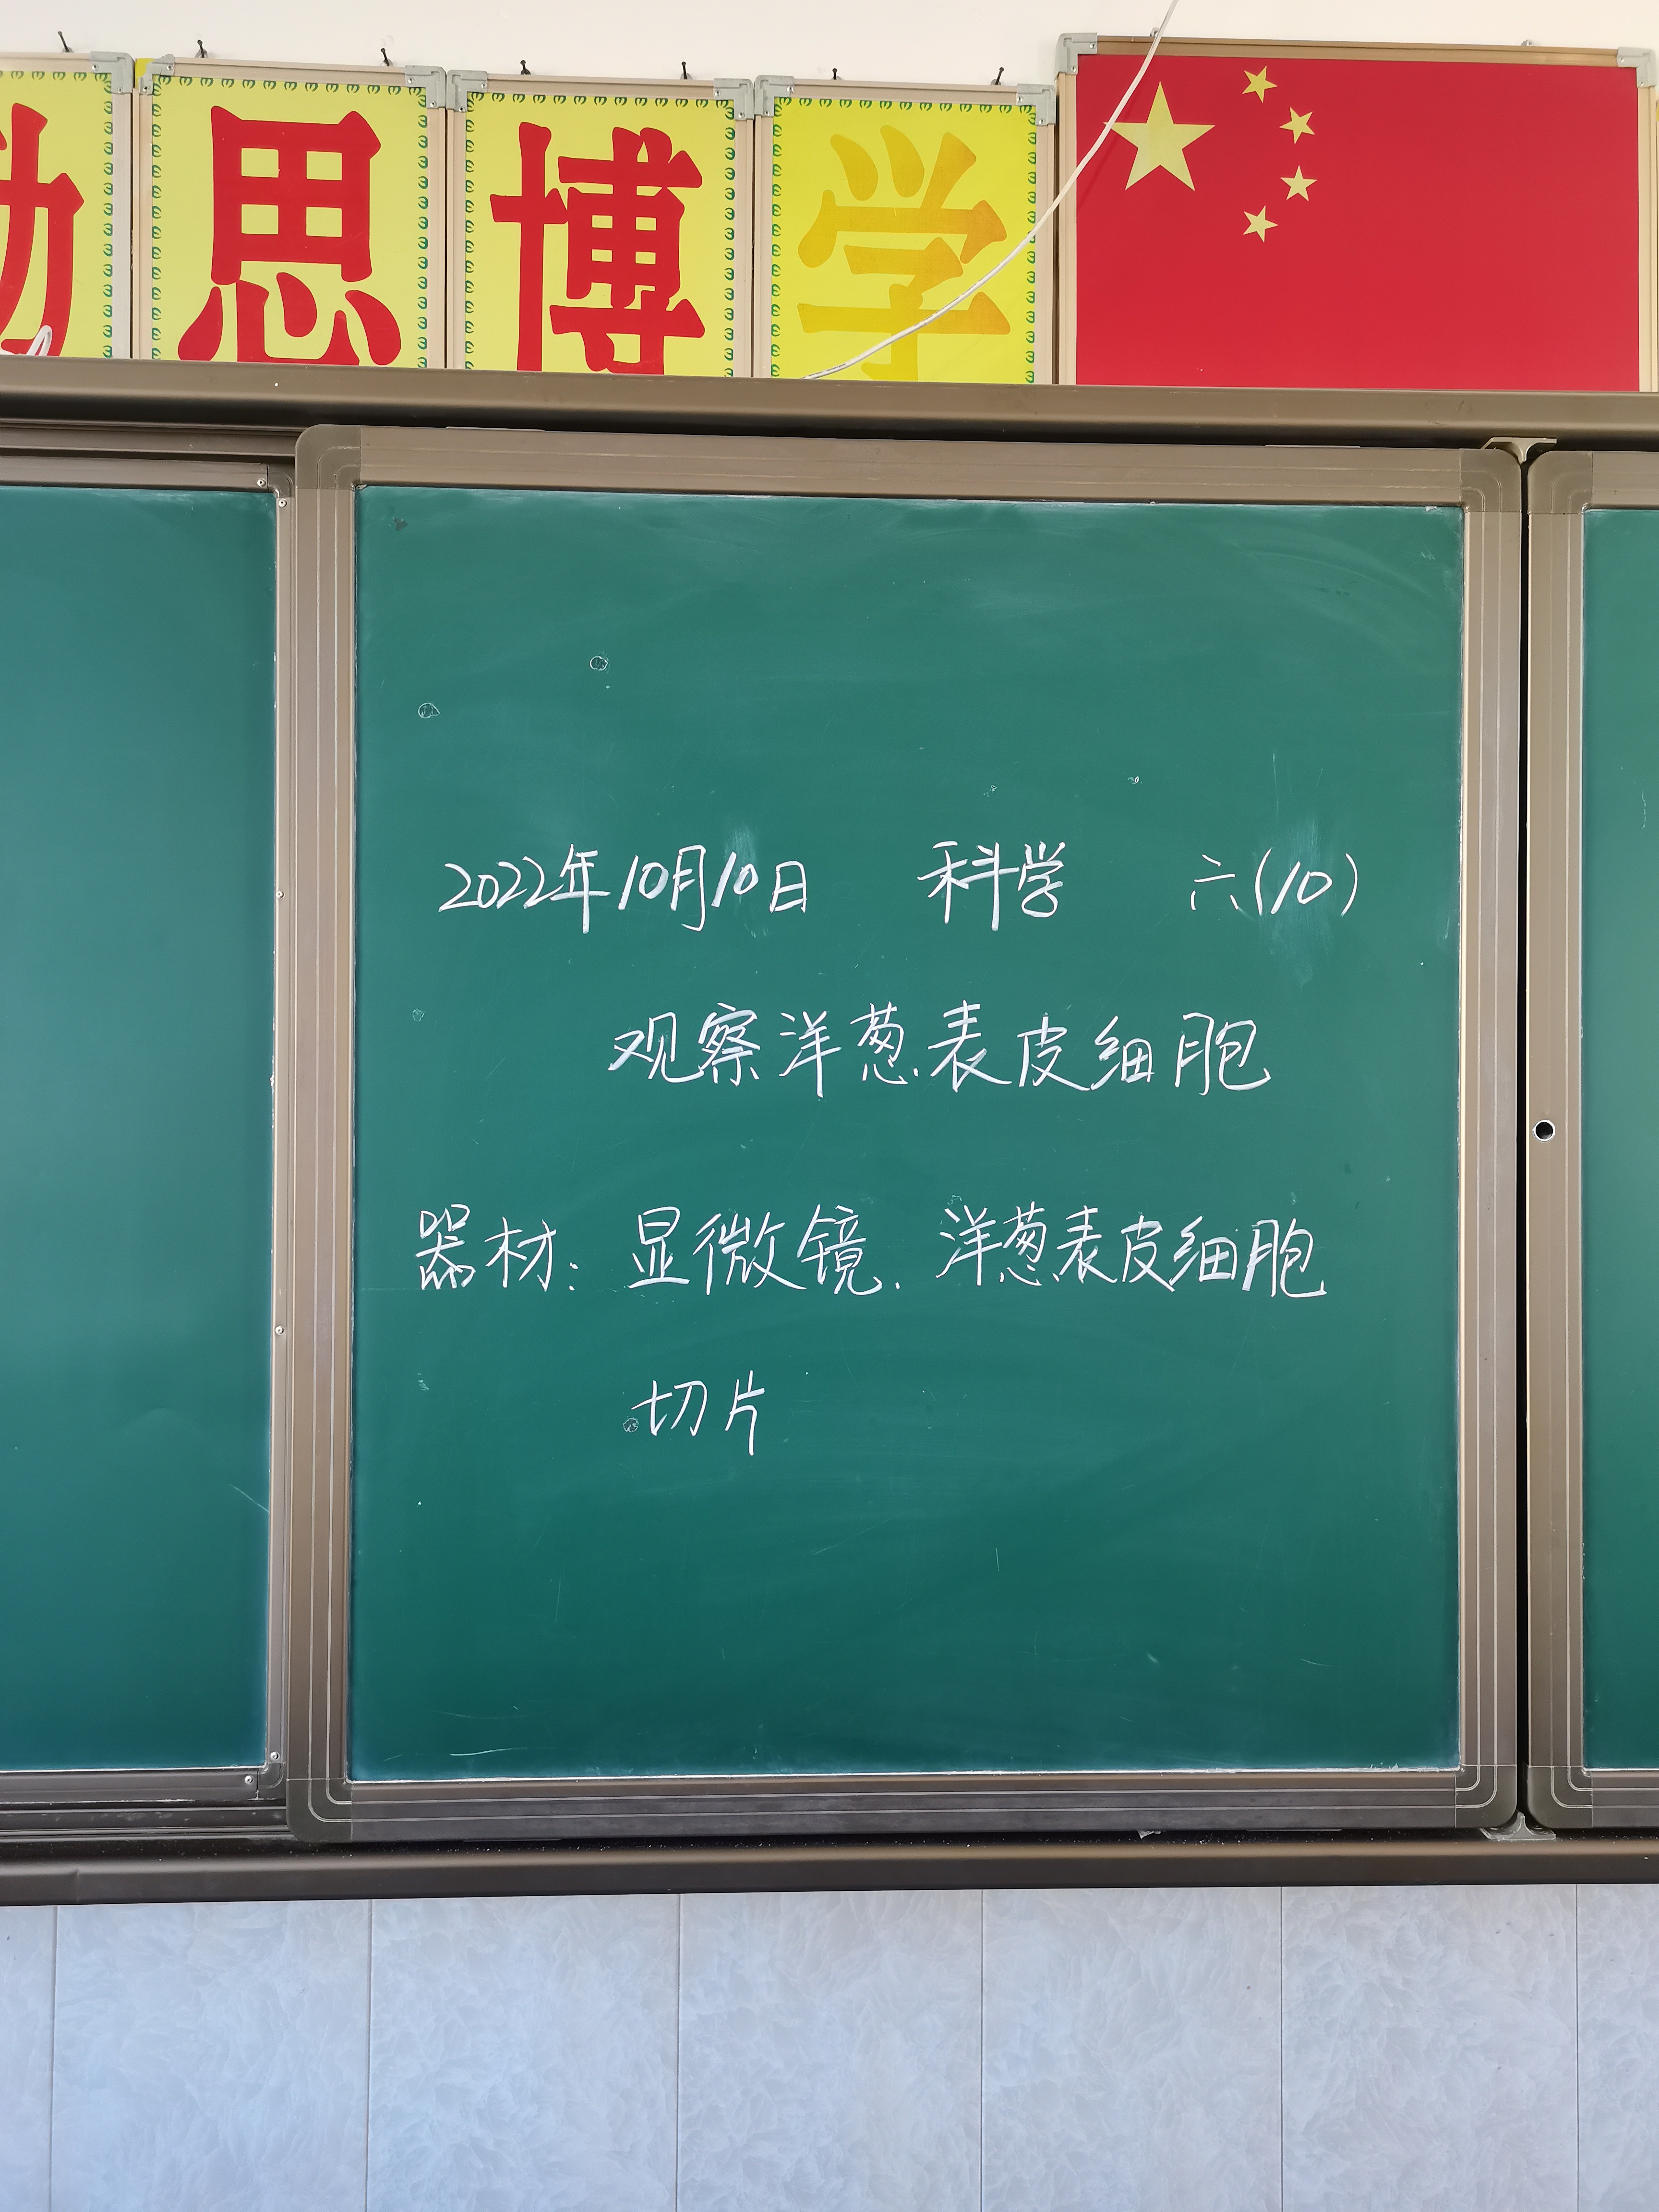 思博学
2022年10月10日 科学 六(10)
观察洋葱表皮细胞
器材: 显微镜、洋葱表皮细胞
切片